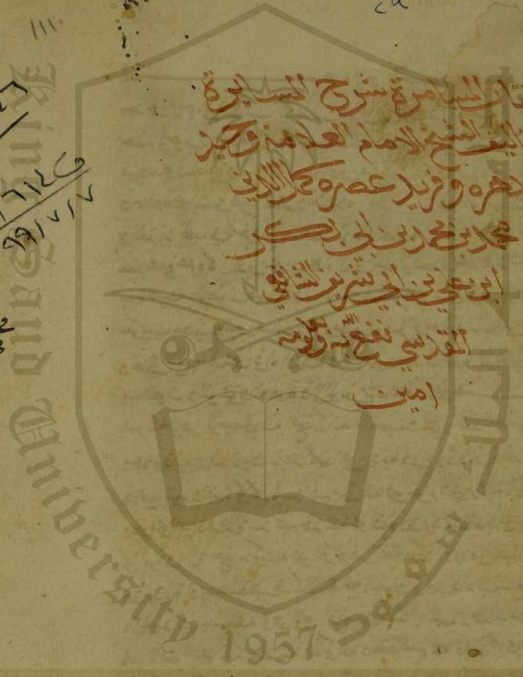 كتاب المسامرة شرح المسايرة
تاليف الشيخ الامام العلامة وحيد
دهره وفريد عصره كمال الدين
محمد بن محمد بن ابي بكر
ابن علي بن ابي شريف الشافعي
القدسي نفع الله به وبعلومه
امين
King Saud University 1957
جامعة الملك سعود